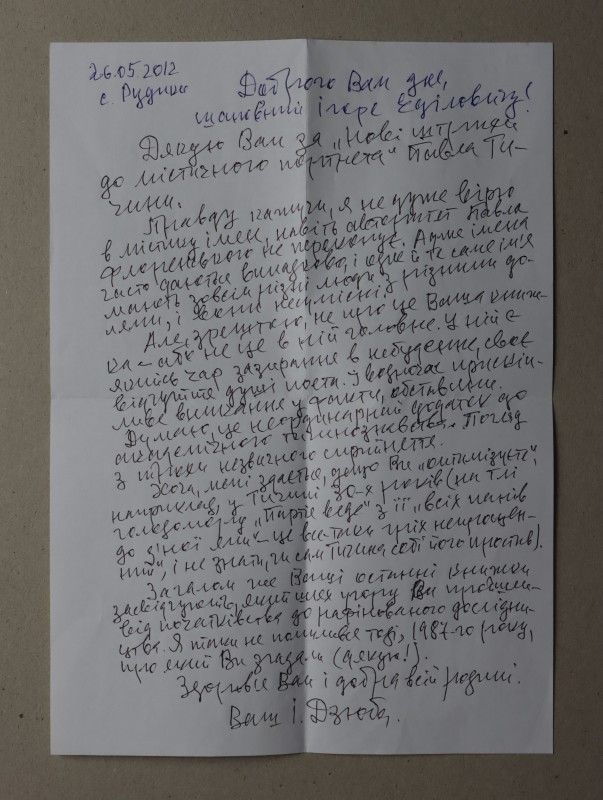 26.05.2012
с. Рудики
Доброго Вам дня,
шановний Ігоре Еділовичу!
Дякую Вам за „Нові штрихи
до містичного портрета" Павла Ти-
чини.
Правду кажучи, я не дуже вірю
в містику імен, навіть авторитет Павла
Флоренського не переконує. Адже імена
часто даються випадково, і одне й те саме ім'я
мають зовсім різні люди, з різними до-
лями, і вони несумісні.
Але, зрештою, не про це Ваша книж-
ка – або не це в ній головне. У ній є
якийсь чар зазирання в небуденне, своє
відчуття душі поета. І водночас прискіп-
ливе вникання у факти, обставини.
Думаю, це неординарний додаток до
академічного тичинознавства. Погляд
з трохи незвичного сприйняття.
Хоча, мені здається, дещо Ви „оптимізуєте",
наприклад, у Тичині 30-х років (на тлі
голодомору „Партія веде" з її „всіх панів
до 'дної ями" – це все-таки гріх непрощен-
ний, і не знати, чи сам Тичина собі його простив).
Загалом же Ваші останні книжки
засвідчують, який шлях угору Ви пройшли
від початківства до рафінованого дослідни-
цтва. Я таки не помилився тоді, 1987-го року,
про який Ви згадали (дякую!).
Здоров'я Вам і добра всій родині.
Ваш І. Дзюба.